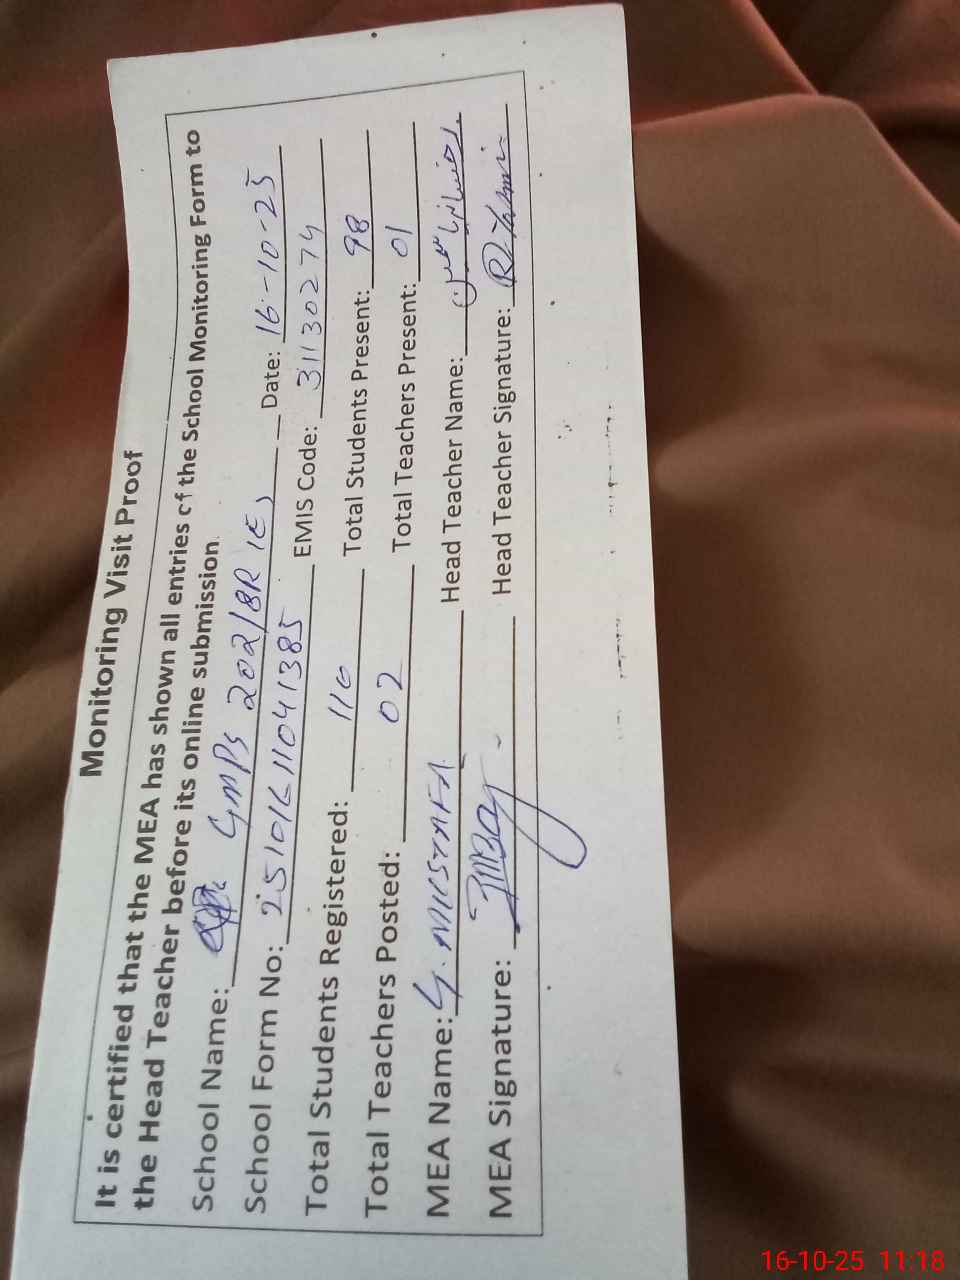 Monitoring Visit Proof
It is certified that the MEA has shown all entries of the School Monitoring Form to
the Head Teacher before its online submission
School Name: GMPS 202/8R Date: 16-10-25
School Form No: 25101611041385 EMIS Code: 31130274
Total Students Registered: 110 Total Students Present: 98
Total Teachers Posted: 02 Total Teachers Present: 01
MEA Name: G. MUSTAFA Head Teacher Name:
MEA Signature: Head Teacher Signature:
16-10-25 11:18